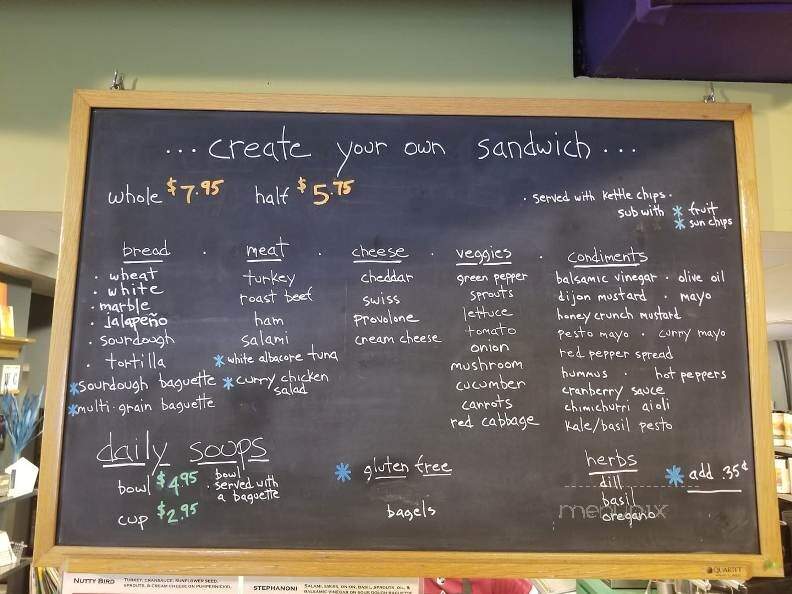 ... create your own sandwich ...
whole $7.95 half $5.75
· served with kettle chips ·
sub with * fruit
* sun chips
bread · meat · cheese · veggies · condiments
· wheat
· white
· marble
· jalapeño
· sourdough
· tortilla
*sourdough baguette
*multi-grain baguette
turkey
roast beef
ham
salami
*white albacore tuna
*curry chicken
salad
cheddar
swiss
provolone
cream cheese
green pepper
sprouts
lettuce
tomato
onion
mushroom
cucumber
carrots
red cabbage
balsamic vinegar · olive oil
dijon mustard · mayo
honey crunch mustard
pesto mayo · curry mayo
red pepper spread
hummus · hot peppers
cranberry sauce
chimichurri aioli
kale/basil pesto
daily soups
bowl $4.95 bowl
· served with
a baguette
cup $2.95
* gluten free
bagels
herbs
dill
basil
oregano
* add .35¢
menupix
QUARTET
NUTTY BIRD
TURKEY, CRANSAUCE, SUNFLOWER SEED,
SPROUTS, & CREAM CHEESE ON PUMPERNICKEL
STEPHANONI
SALAMI, SWISS, ONION, BASIL, SPROUTS, OIL, &
BALSAMIC VINEGAR ON SOUR DOUGH BAGUETTE